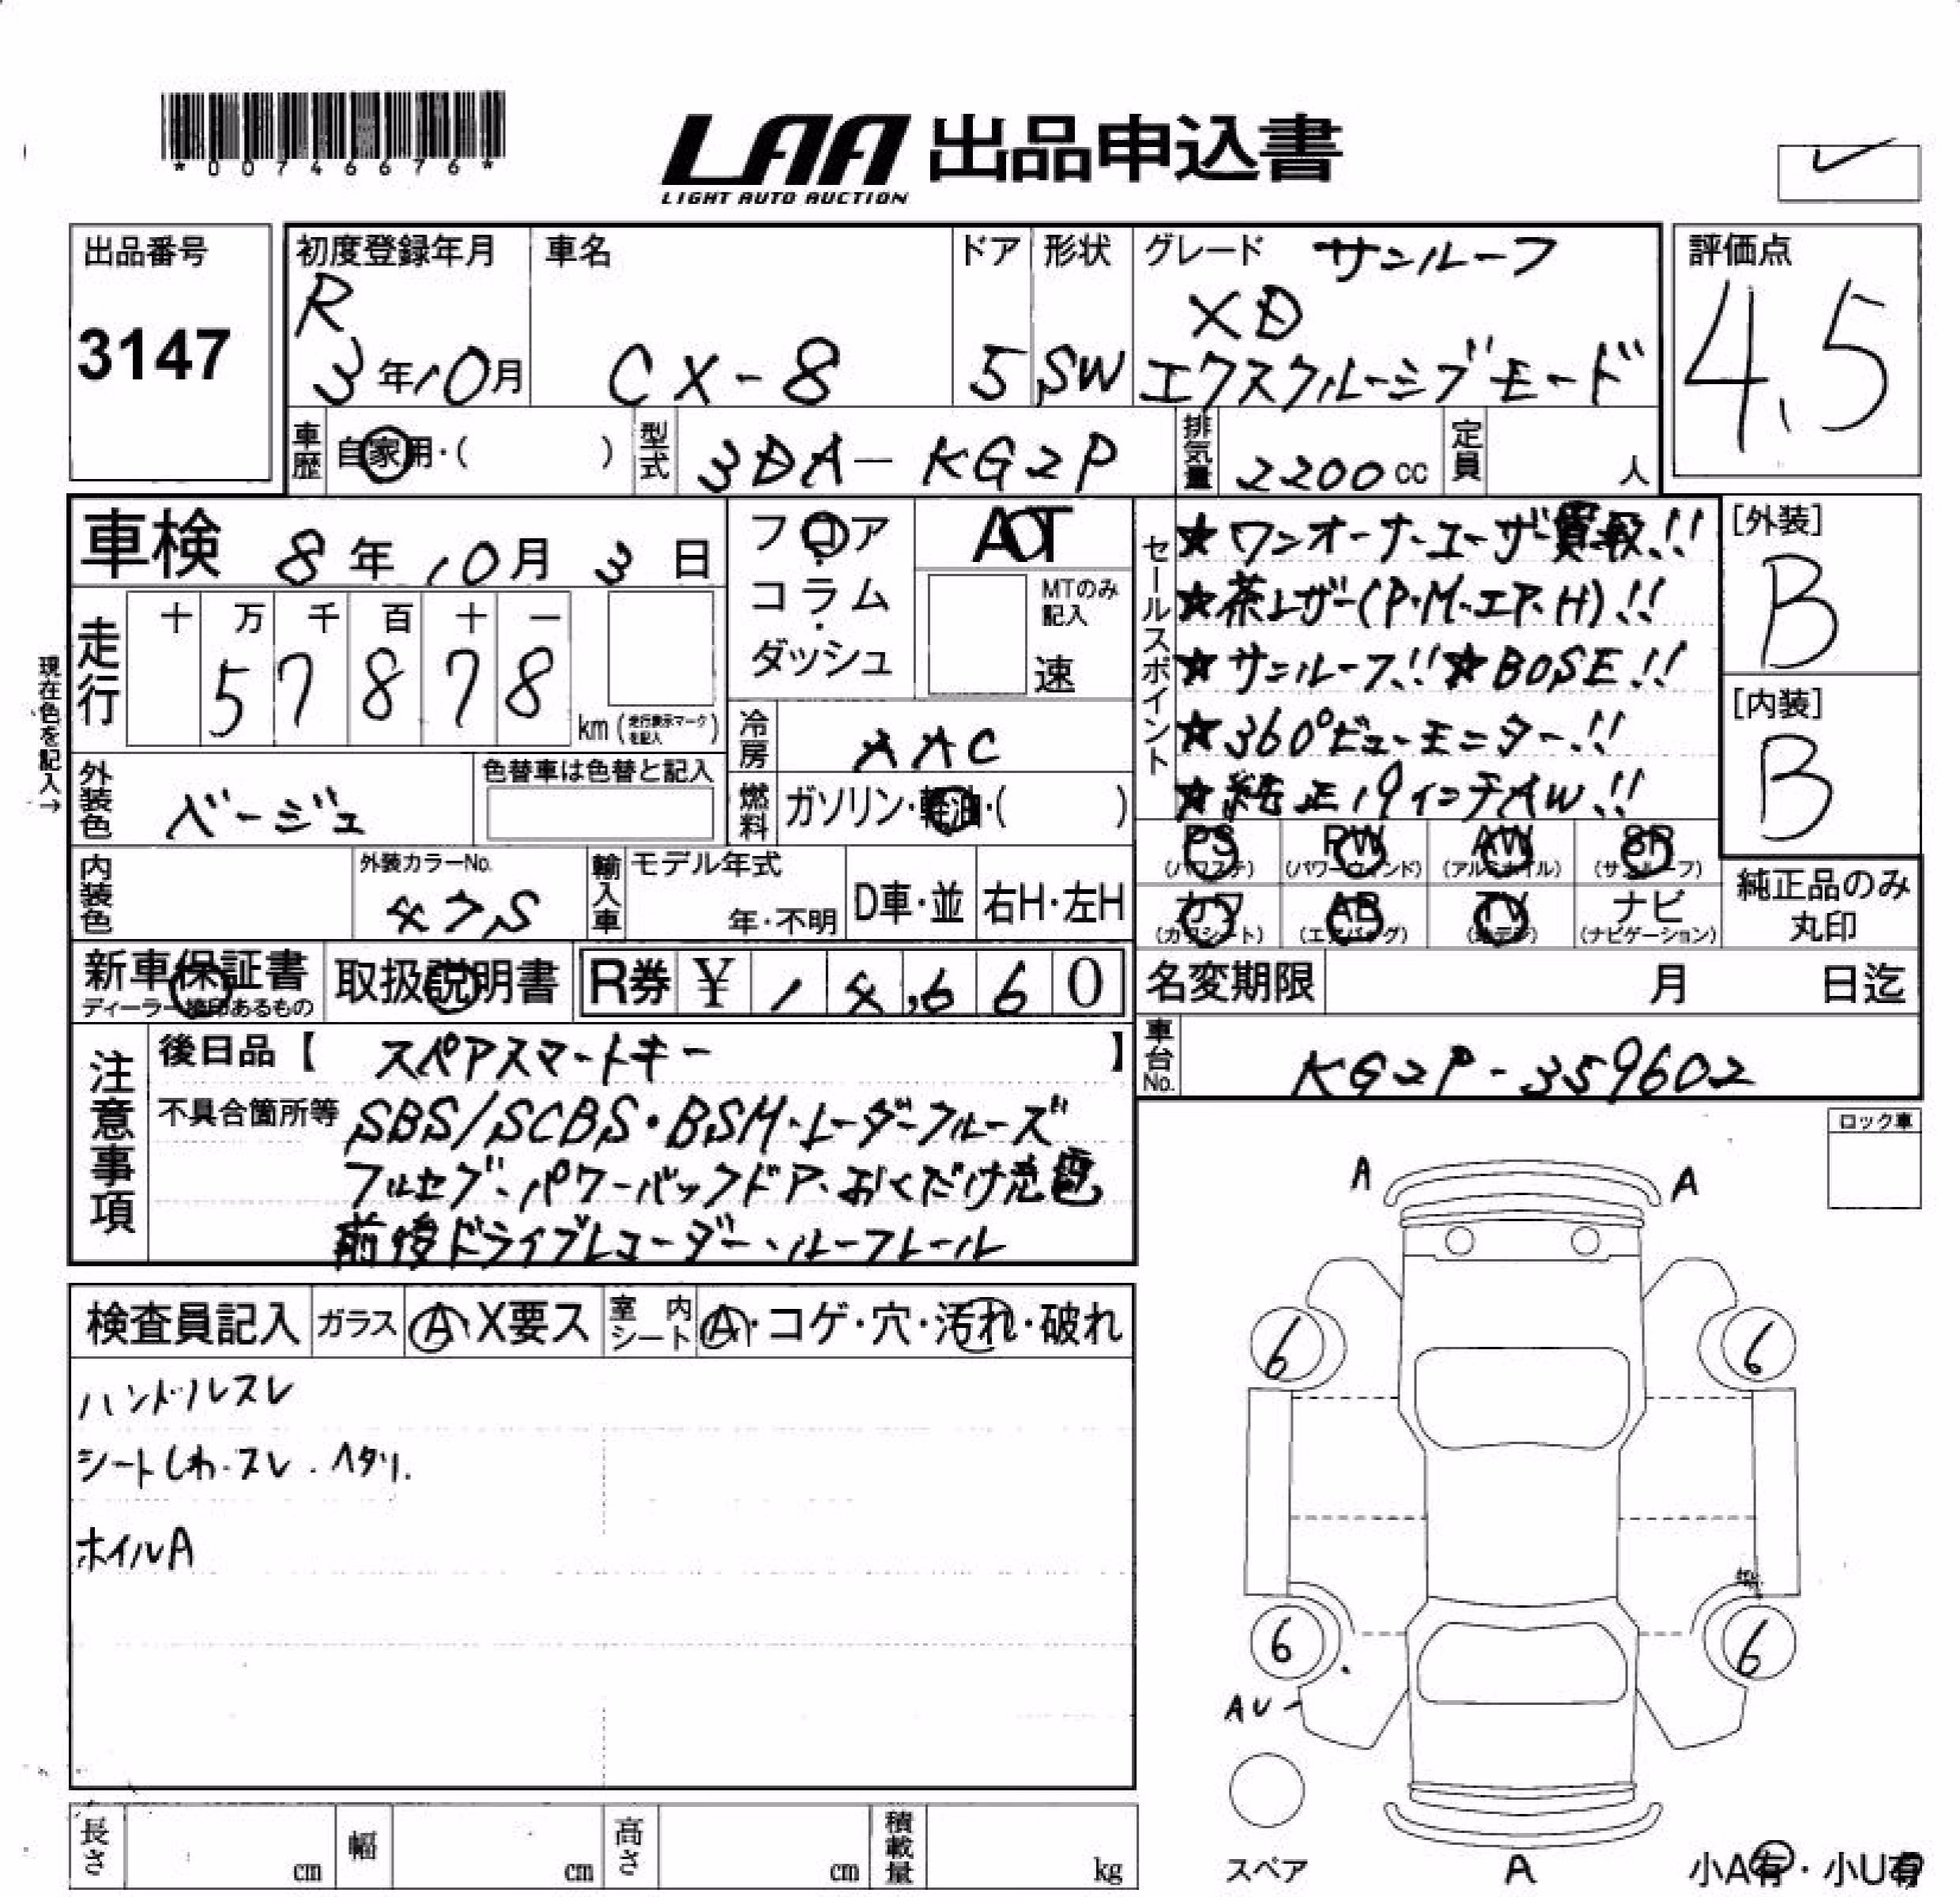 *00746676*
LAA 出品申込書
LIGHT AUTO AUCTION
出品番号
3147
初度登録年月
R
3年10月
車名
CX-8
ドア
5
形状
SW
グレード サンルーフ
XD
エクスクルーシブモード
評価点
4.5
車歴 自家用・( )
型式 3DA-KG2P
排気量 2200cc
定員 人
車検 8年10月3日
フロア
・
コラム
・
ダッシュ
AT
MTのみ記入
速
走行
十 万 千 百 十 一
5 7 8 7 8
km (走行表示マークを記入)
現在色を記入→
冷房 AAC
外装色 ベージュ
色替車は色替と記入
燃料 ガソリン・軽油・( )
内装色
外装カラーNo.
47S
輸入車
モデル年式
年・不明
D車・並
右H・左H
セールスポイント
★ワンオーナーユーザー買取!!
★茶レザー(P.M.エア.H)!!
★サンルーフ!!★BOSE!!
★360°ビューモニター!!
★純正19インチAW!!
[外装]
B
[内装]
B
PS (パワステ)
PW (パワーウィンド)
AW (アルミホイル)
SR (サンルーフ)
カワ (カワシート)
AB (エアバッグ)
TV (地デジ)
ナビ (ナビゲーション)
純正品のみ
丸印
新車保証書
ディーラー捺印あるもの
取扱説明書
R券 ¥ 14,660
名変期限 月 日迄
車台No. KG2P-359602
注意事項
後日品【 スペアスマートキー 】
不具合箇所等 SBS/SCBS・BSM・レーダークルーズ
フルセグ・パワーバックドア・おくだけ充電
前後ドライブレコーダー・ルーフレール
ロック車
検査員記入
ガラス A・X要ス
室内シート A・コゲ・穴・汚れ・破れ
ハンドルスレ
シートしわ・スレ・ヘタリ.
ホイルA
A A
6 6
6 6
AU
スペア
A
小A有・小U有
長さ cm
幅 cm
高さ cm
積載量 kg